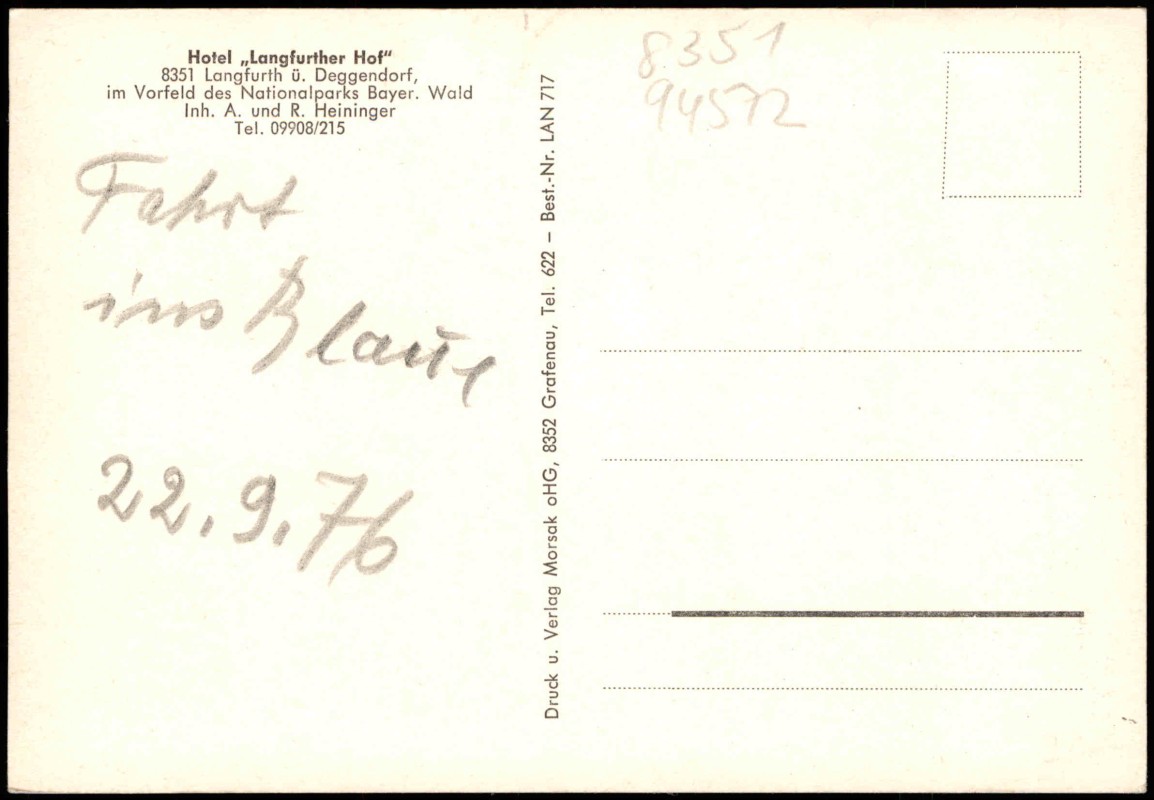 Hotel „Langfurther Hof"
8351 Langfurth ü. Deggendorf,
im Vorfeld des Nationalparks Bayer. Wald
Inh. A. und R. Heininger
Tel. 09908/215
Fahrt
ins Blaue
22.9.76
Druck u. Verlag Morsak oHG, 8352 Grafenau, Tel. 622 – Best.-Nr. LAN 717
8351
94572